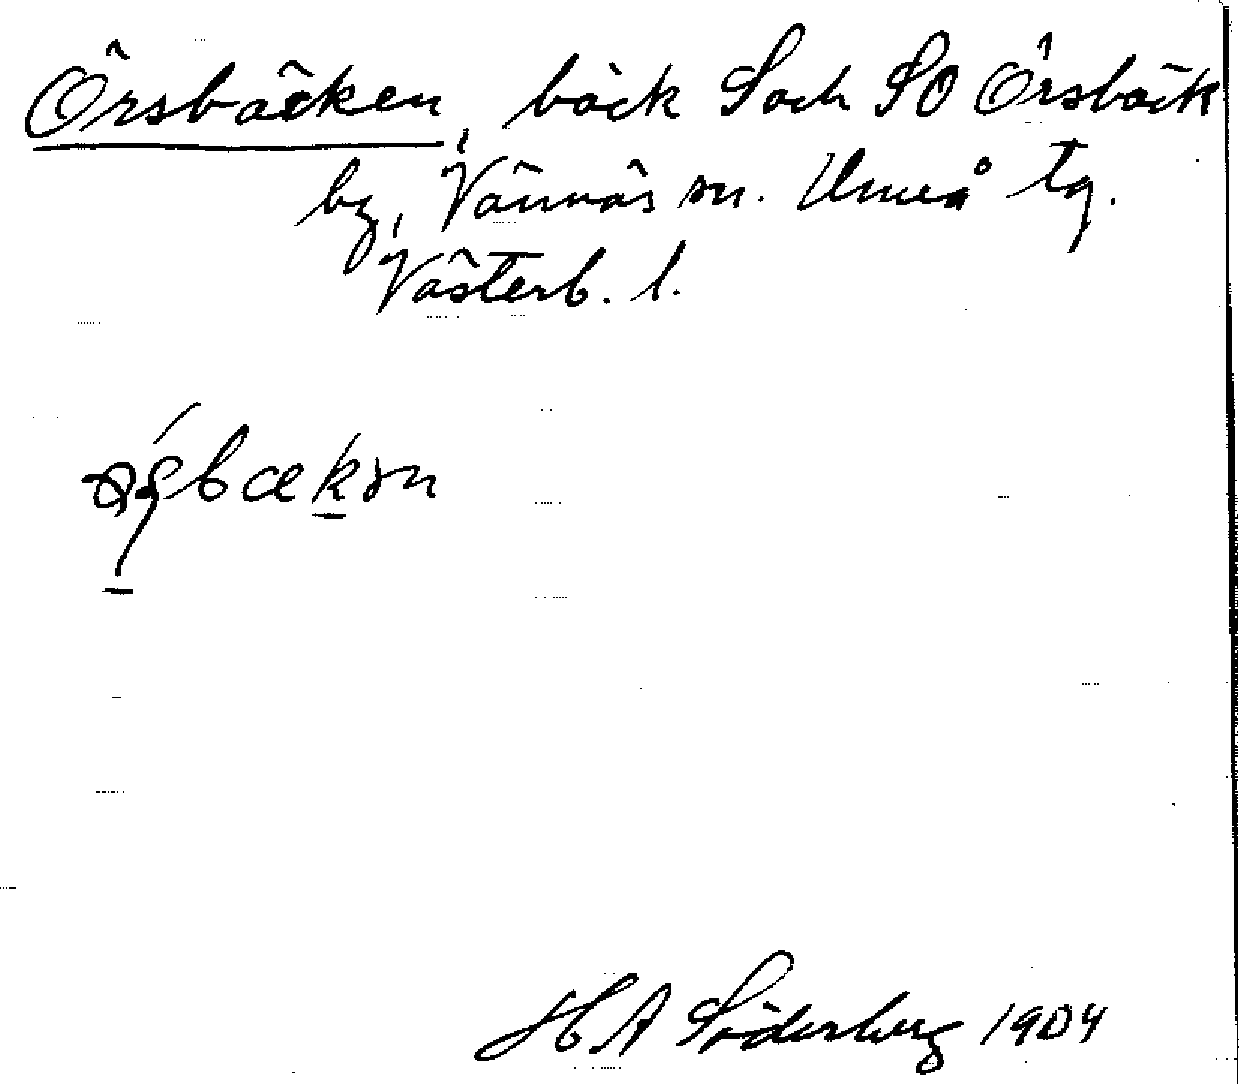 Örsbäcken, bäck S och SO Örsbäck
by, Vännäs sn. Umeå tg.
Västerb. l.
H A Söderberg 1904